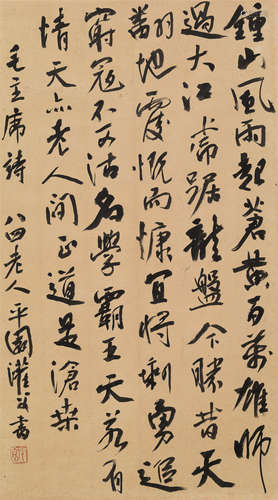 鍾山風雨起蒼黃百萬雄師
過大江虎踞龍盤今勝昔天
翻地覆慨而慷宜將剩勇追
窮寇不可沽名學霸王天若有
情天亦老人間正道是滄桑
毛主席詩 八四老人平園灌書